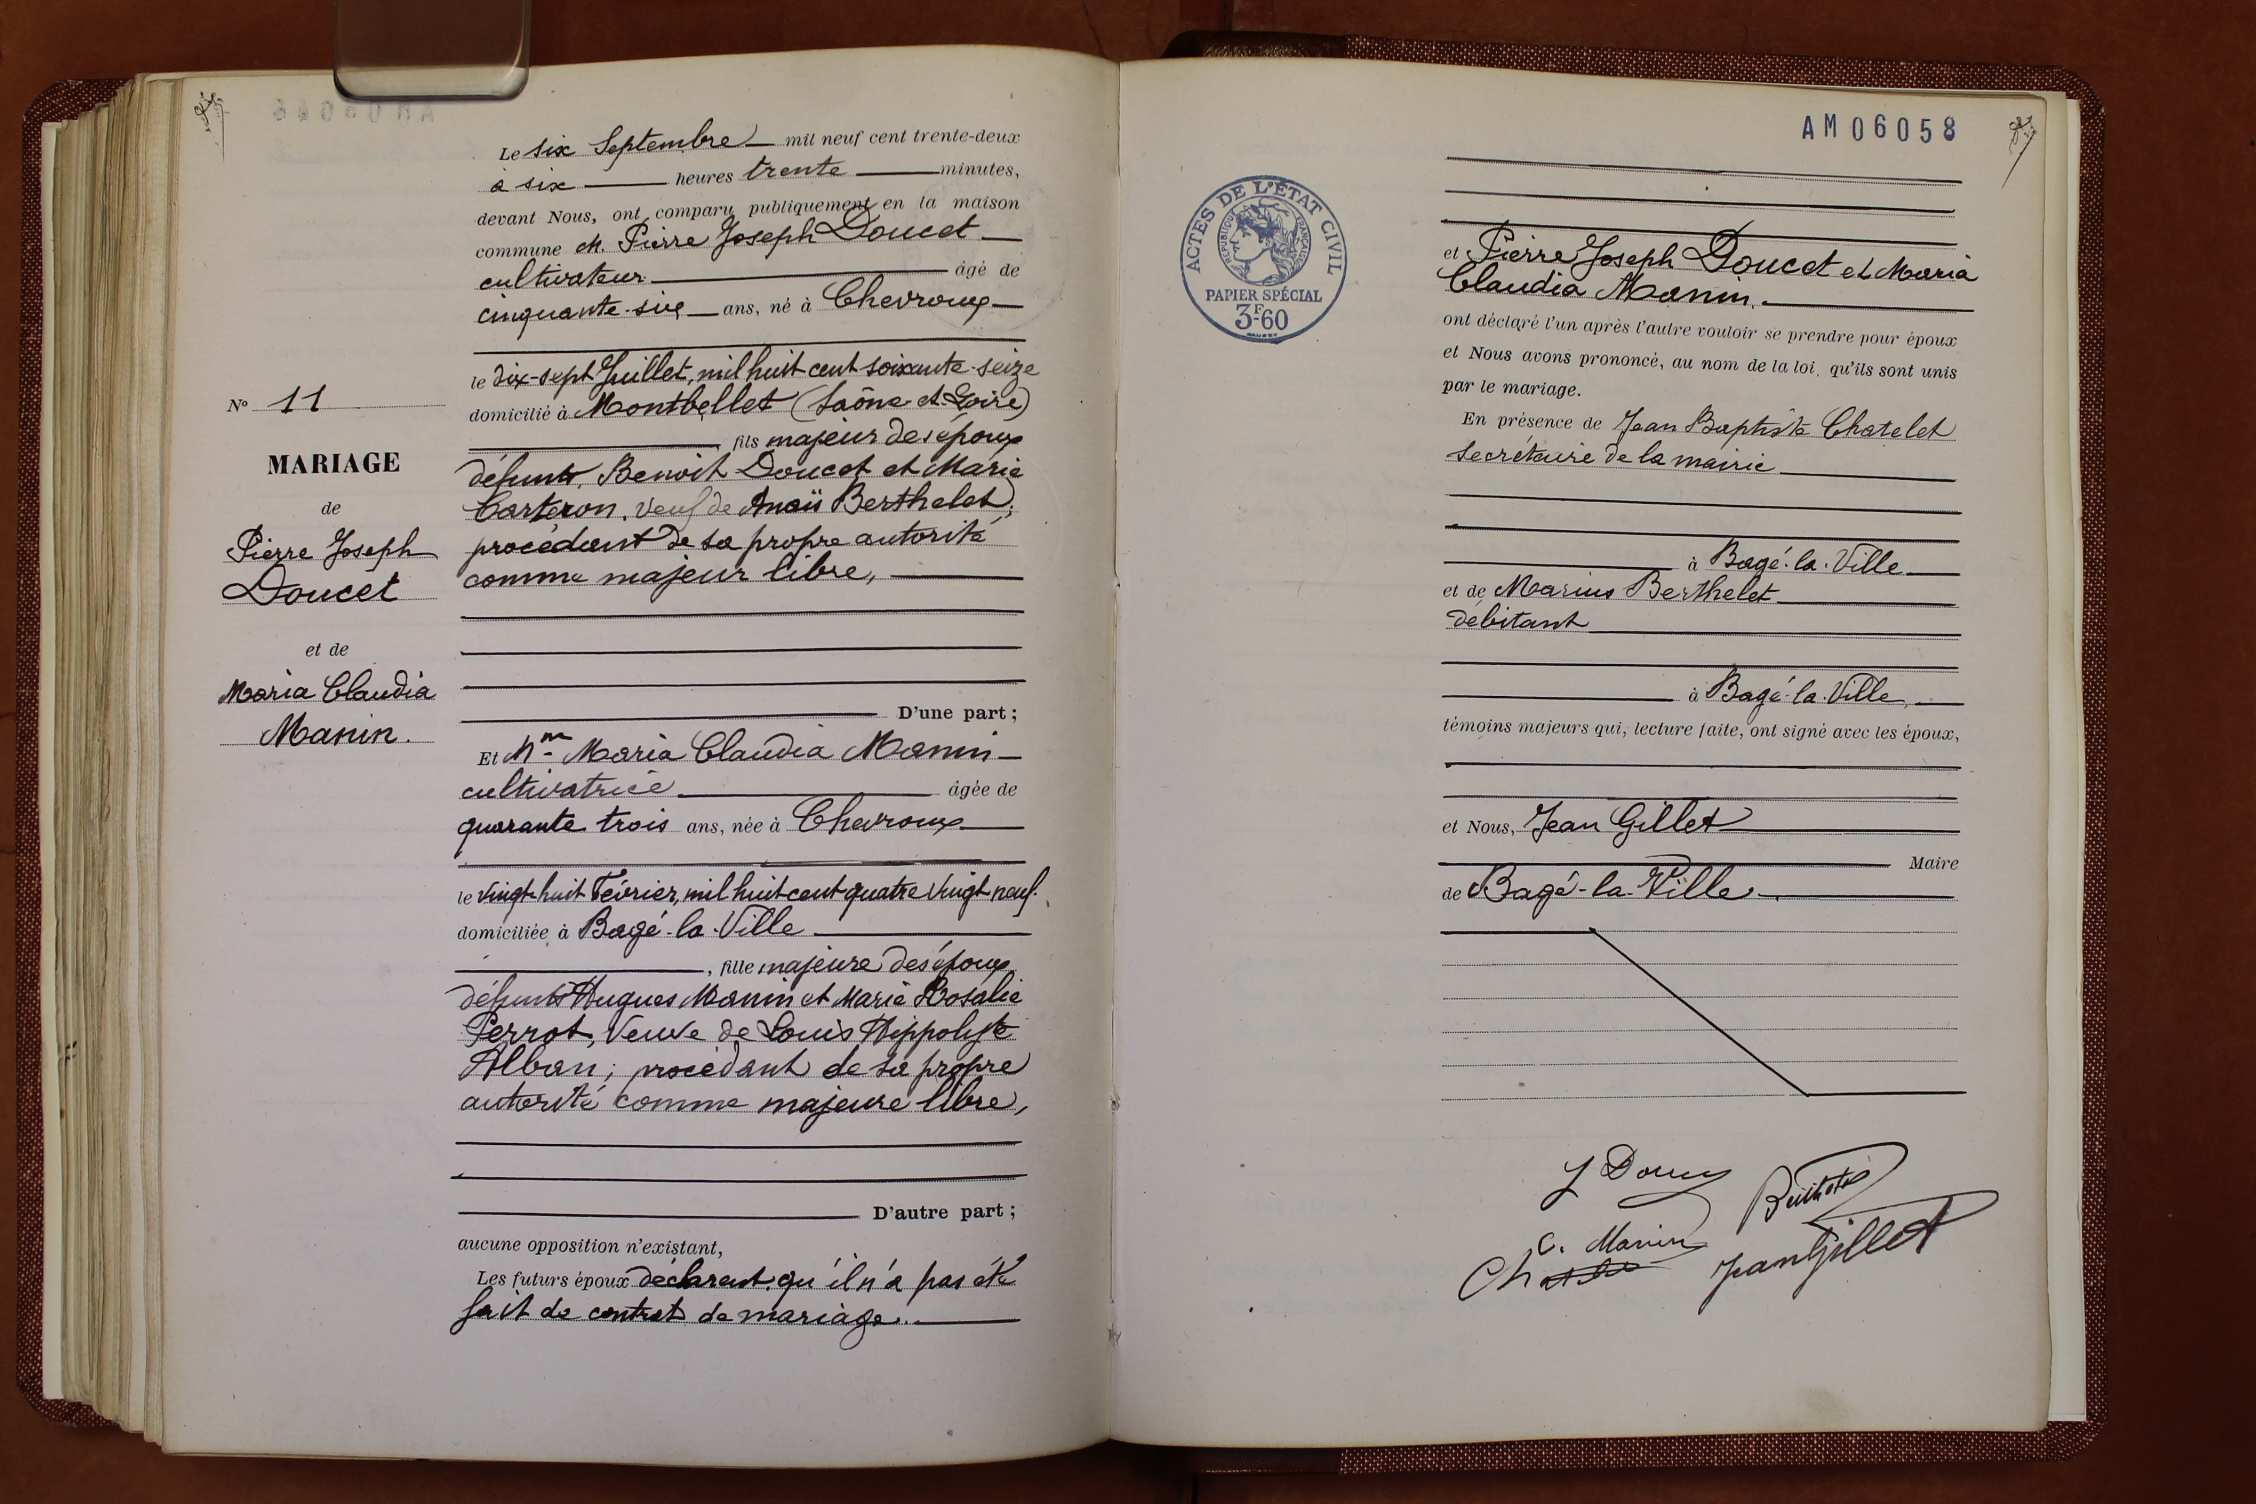 Le six Septembre mil neuf cent trente-deux
à six heures trente minutes,
devant Nous, ont comparu publiquement en la maison
commune M. Pierre Joseph Doucet
cultivateur âgé de
cinquante-six ans, né à Chevroux
le dix-sept Juillet, mil huit cent soixante-seize
domicilié à Montbellet (Saône-et-Loire)
fils majeur des époux
défunts, Benoit Doucet et Marie
Carteron, veuf de Anaïs Berthelet;
procédant de sa propre autorité
comme majeur libre,
D'une part ;
Et Mme Maria Claudia Manin
cultivatrice âgée de
quarante trois ans, née à Chevroux
le vingt-huit Février, mil huit cent quatre vingt neuf.
domiciliée à Bagé-la-Ville
, fille majeure des époux
défunts Hugues Manin et Marie Rosalie
Perrot, Veuve de Louis Hippolyte
Alban ; procédant de sa propre
autorité comme majeure libre,
D'autre part ;
aucune opposition n'existant,
Les futurs époux déclarent qu'il n'a pas été
fait de contrat de mariage.
No 11
MARIAGE
de
Pierre Joseph
Doucet
et de
Maria Claudia
Manin.
AM06058
ACTES DE L'ÉTAT CIVIL
RÉPUBLIQUE FRANÇAISE
PAPIER SPÉCIAL
3F60
et Pierre Joseph Doucet et Maria
Claudia Manin.
ont déclaré l'un après l'autre vouloir se prendre pour époux
et Nous avons prononcé, au nom de la loi, qu'ils sont unis
par le mariage.
En présence de Jean Baptiste Chatelet
secrétaire de la mairie
à Bagé-la-Ville
et de Marius Berthelet
débitant
à Bagé-la-Ville,
témoins majeurs qui, lecture faite, ont signé avec les époux,
et Nous, Jean Gillet
Maire
de Bagé-la-Ville.
J Doucet
Berthelet
C. Manin
Jean Gillet